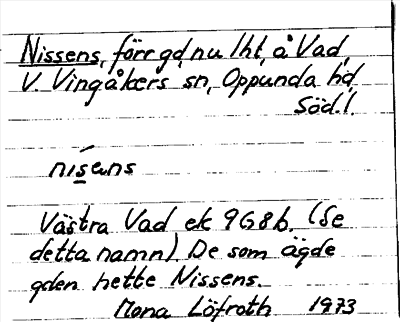 Nissens, förr gd, nu lht, å Vad,
V. Vingåkers sn, Oppunda hd,
Söd.l.
nísens
Västra Vad ek 9G8b. (Se
detta namn) De som ägde
gden hette Nissens.
Mona Löfroth 1973